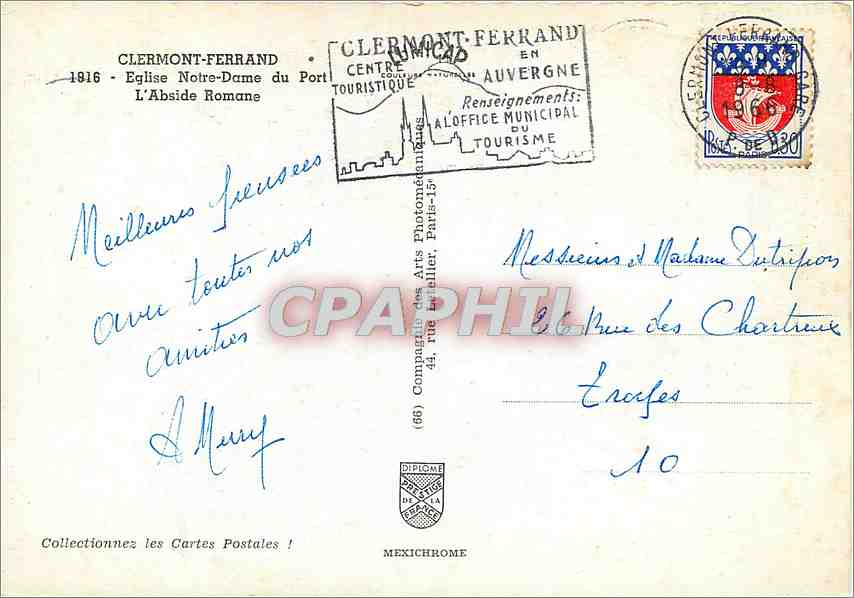 CLERMONT-FERRAND
1816 - Eglise Notre-Dame du Port
L'Abside Romane
LUMICAP
COULEURS NATURELLES
CLERMONT-FERRAND
EN
AUVERGNE
CENTRE
TOURISTIQUE
Renseignements:
A L'OFFICE MUNICIPAL
DU
TOURISME
CLERMONT-FERRAND GARE
1966
P. DE D.
REPUBLIQUE FRANÇAISE
POSTES
0,30
PARIS
Meilleures pensées
avec toutes nos
amitiés
A Mury
(66) Compagnie des Arts Photomécaniques
44, rue Letellier, Paris-15e
CPAPHIL
Messieurs et Madame Dutripon
26 Rue des Chartreux
Troyes
10
DIPLOME
PRESTIGE
DE LA
FRANCE
Collectionnez les Cartes Postales !
MEXICHROME